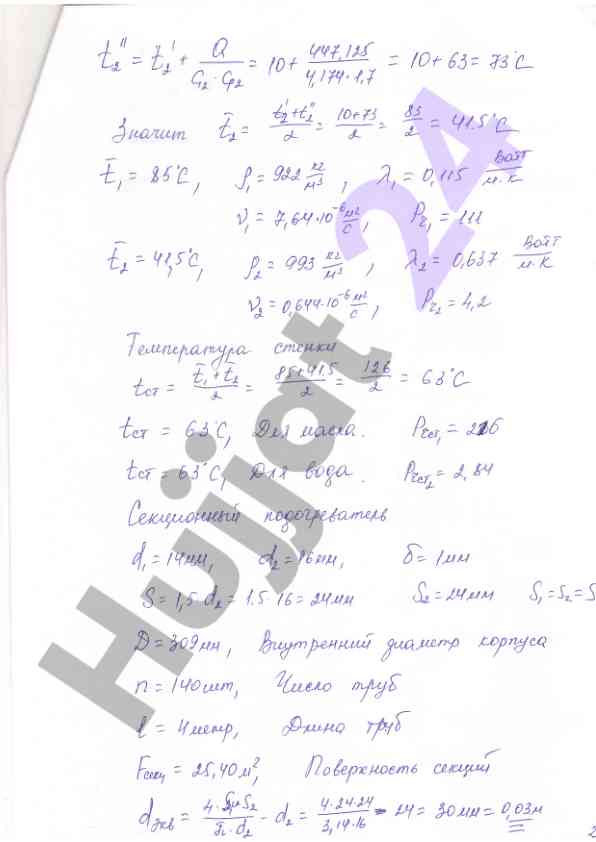 t₂'' = t₂' + Q/(G₂·Cp₂) = 10 + 447,125/(4,174·1,7) = 10+63 = 73°C
Значит t̄₂ = (t₂'+t₂'')/2 = (10+73)/2 = 83/2 = 41.5°C
t̄₁ = 85°C, ρ₁ = 922 кг/м³, λ₁ = 0,115 Ватт/м·К
ν₁ = 7,64·10⁻⁶ м²/с, Pr₁ = 111
t̄₂ = 41,5°C, ρ₂ = 993 кг/м³, λ₂ = 0,637 Ватт/м·К
ν₂ = 0,644·10⁻⁶ м²/с, Pr₂ = 4,2
Температура стенки
tст = (t̄₁+t̄₂)/2 = (85+41.5)/2 = 126/2 = 63°C
tст = 63°C, Для масла. Prст₁ =
tст = 63°C, Для вода. Prст₂ = 2,84
Секционный подогреватель
d₁ = 14мм, d₂ = 16мм, δ = 1мм
S = 1,5·d₂ = 1.5·16 = 24мм S₂ = 24мм S₁=S₂=S
D = 309мм, Внутренний диаметр корпуса
n = 140шт, Число труб
l = 4метр, Длина труб
Fсекц = 25,40м², Поверхность секций
dэкв = 4·S₁·S₂/(π·d₂) - d₂ = 4·24·24/(3,14·16) - 24 = 30мм = 0,03м
2
Hujjat 24